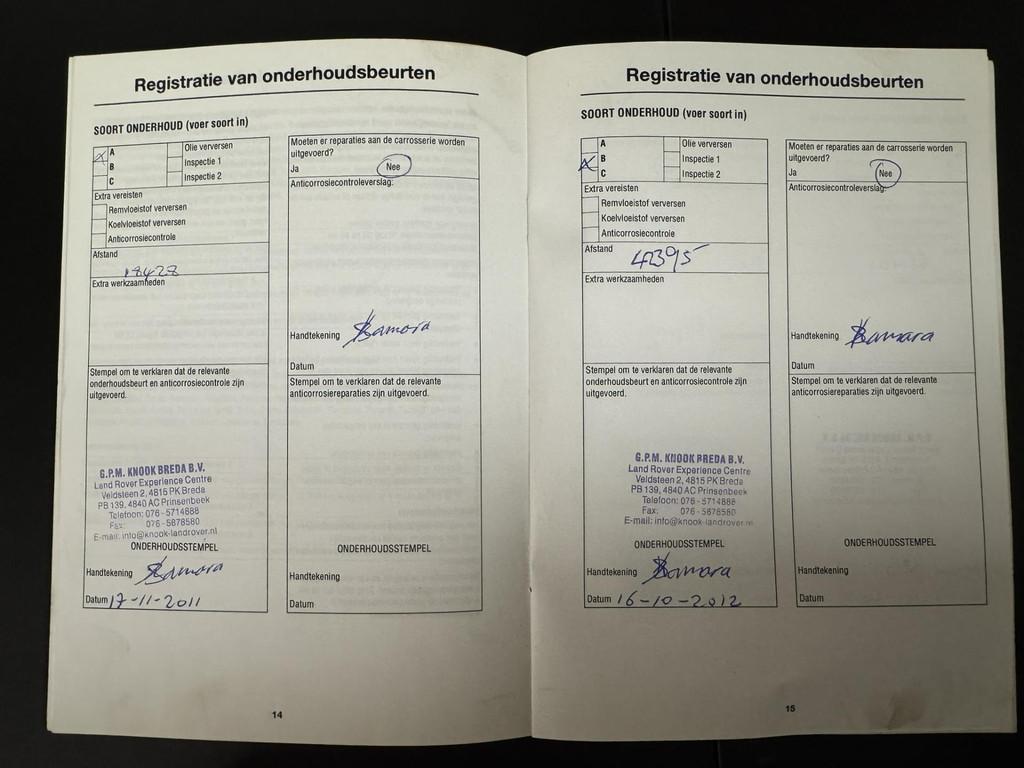 Registratie van onderhoudsbeurten
SOORT ONDERHOUD (voer soort in)
A
B
C
Olie verversen
Inspectie 1
Inspectie 2
Extra vereisten
Remvloeistof verversen
Koelvloeistof verversen
Anticorrosiecontrole
Afstand
18428
Extra werkzaamheden
Stempel om te verklaren dat de relevante
onderhoudsbeurt en anticorrosiecontrole zijn
uitgevoerd.
G.P.M. KNOOK BREDA B.V.
Land Rover Experience Centre
Veldsteen 2, 4815 PK Breda
PB 139, 4840 AC Prinsenbeek
Telefoon: 076-5714888
Fax: 076-5878580
E-mail: info@knook-landrover.nl
ONDERHOUDSSTEMPEL
Handtekening
Datum 17-11-2011
Moeten er reparaties aan de carrosserie worden
uitgevoerd?
Ja Nee
Anticorrosiecontroleverslag:
Handtekening
Datum
Stempel om te verklaren dat de relevante
anticorrosiereparaties zijn uitgevoerd.
ONDERHOUDSSTEMPEL
Handtekening
Datum
14
Registratie van onderhoudsbeurten
SOORT ONDERHOUD (voer soort in)
A
B
C
Olie verversen
Inspectie 1
Inspectie 2
Extra vereisten
Remvloeistof verversen
Koelvloeistof verversen
Anticorrosiecontrole
Afstand
42395
Extra werkzaamheden
Stempel om te verklaren dat de relevante
onderhoudsbeurt en anticorrosiecontrole zijn
uitgevoerd.
G.P.M. KNOOK BREDA B.V.
Land Rover Experience Centre
Veldsteen 2, 4815 PK Breda
PB 139, 4840 AC Prinsenbeek
Telefoon: 076-5714888
Fax: 076-5878580
E-mail: info@knook-landrover.nl
ONDERHOUDSSTEMPEL
Handtekening
Datum 16-10-2012
Moeten er reparaties aan de carrosserie worden
uitgevoerd?
Ja Nee
Anticorrosiecontroleverslag:
Handtekening
Datum
Stempel om te verklaren dat de relevante
anticorrosiereparaties zijn uitgevoerd.
ONDERHOUDSSTEMPEL
Handtekening
Datum
15